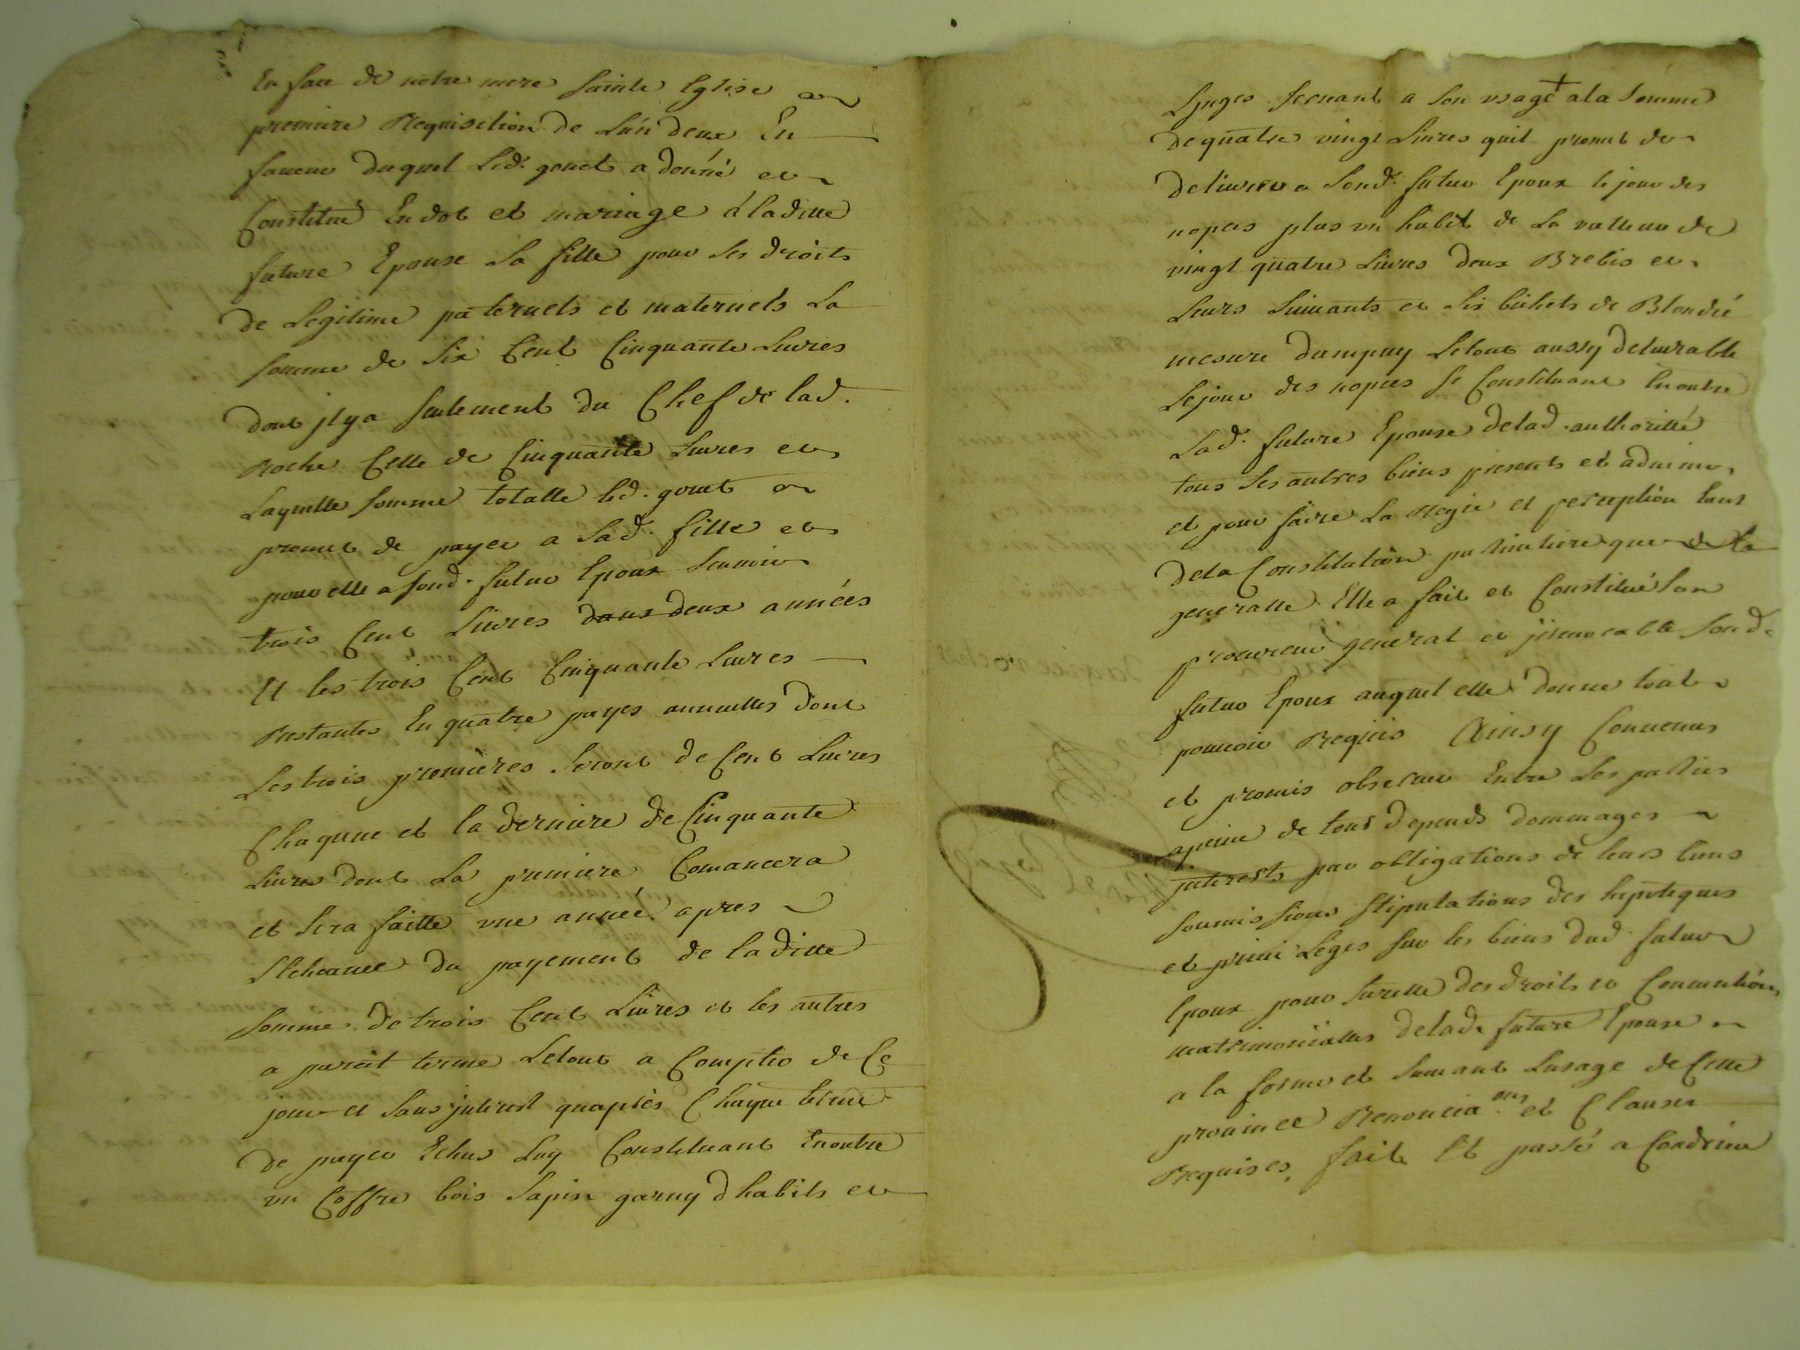 En face de notre mere sainte Eglise a
premiere Requisition de L'un deux En
faveur duquel Led. gonet a donné et
Constitué En dot et mariage a laditte
future Epouse Sa fille pour ses droits
de Legitime paternels et maternels La
somme de Six Cent Cinquante Livres
dont jl y a seulement du Chef de lad.
Roche Celle de Cinquante Livres et
Laquelle somme totalle led. gonet
promet de payer a Sad. fille et
pour elle a sond. futur Epoux Scavoir
trois Cent Livres dans deux années
Et les trois Cent Cinquante Livres
Restantes En quatre payes annuelles dont
Les trois premieres seront de Cent Livres
Chaqune et la derniere de Cinquante
Livres dont La premiere Comancera
et sera faitte une année apres
L'Echeance du payement de laditte
somme de trois Cent Livres et les autres
a pareit terme Letout a Compter de Ce
jour et Sans jnterest quaprès Chaque terme
de paye Echus Luy Constituant Enoutre
un Coffre bois Sapin garny d habits et
Linges servant a Son usage + a la Somme
de quatre vingt Livres quil promet de
delivrer a Sond. futur Epoux le jour des
nopces plus un habit de La valleur de
vingt quatre Livres deux Brebis et
Leurs Suivants et Six bichets de Blondée
mesure dampuy Letout aussy delivrable
Le jour des nopces se Constituant Enoutre
Lad. future Epouse delad. authoritté
tous Ses autres biens presents et advenir
et pour faire La Regie et perception tant
dela Constitution particuliere que de la
generalle Elle a fait et Constitué Son
procureur general et jrrevocable Sond.
futur Epoux auquel elle donne tout
pouvoir Requis Ainsy Convenus
et promis observer Entre Les parties
apeine de tous depends dommages
jnterests par obligations de leurs biens
soumissions stipulations des hipoteques
et privileges sur les biens dud. futur
Epoux pour surette des droits et Conventions
matrimoniales delad. future Epouse
a la forme et suivant Lusage de Cette
province Renonciaons et Clauses
Requises, fait Et passé a Condrieu